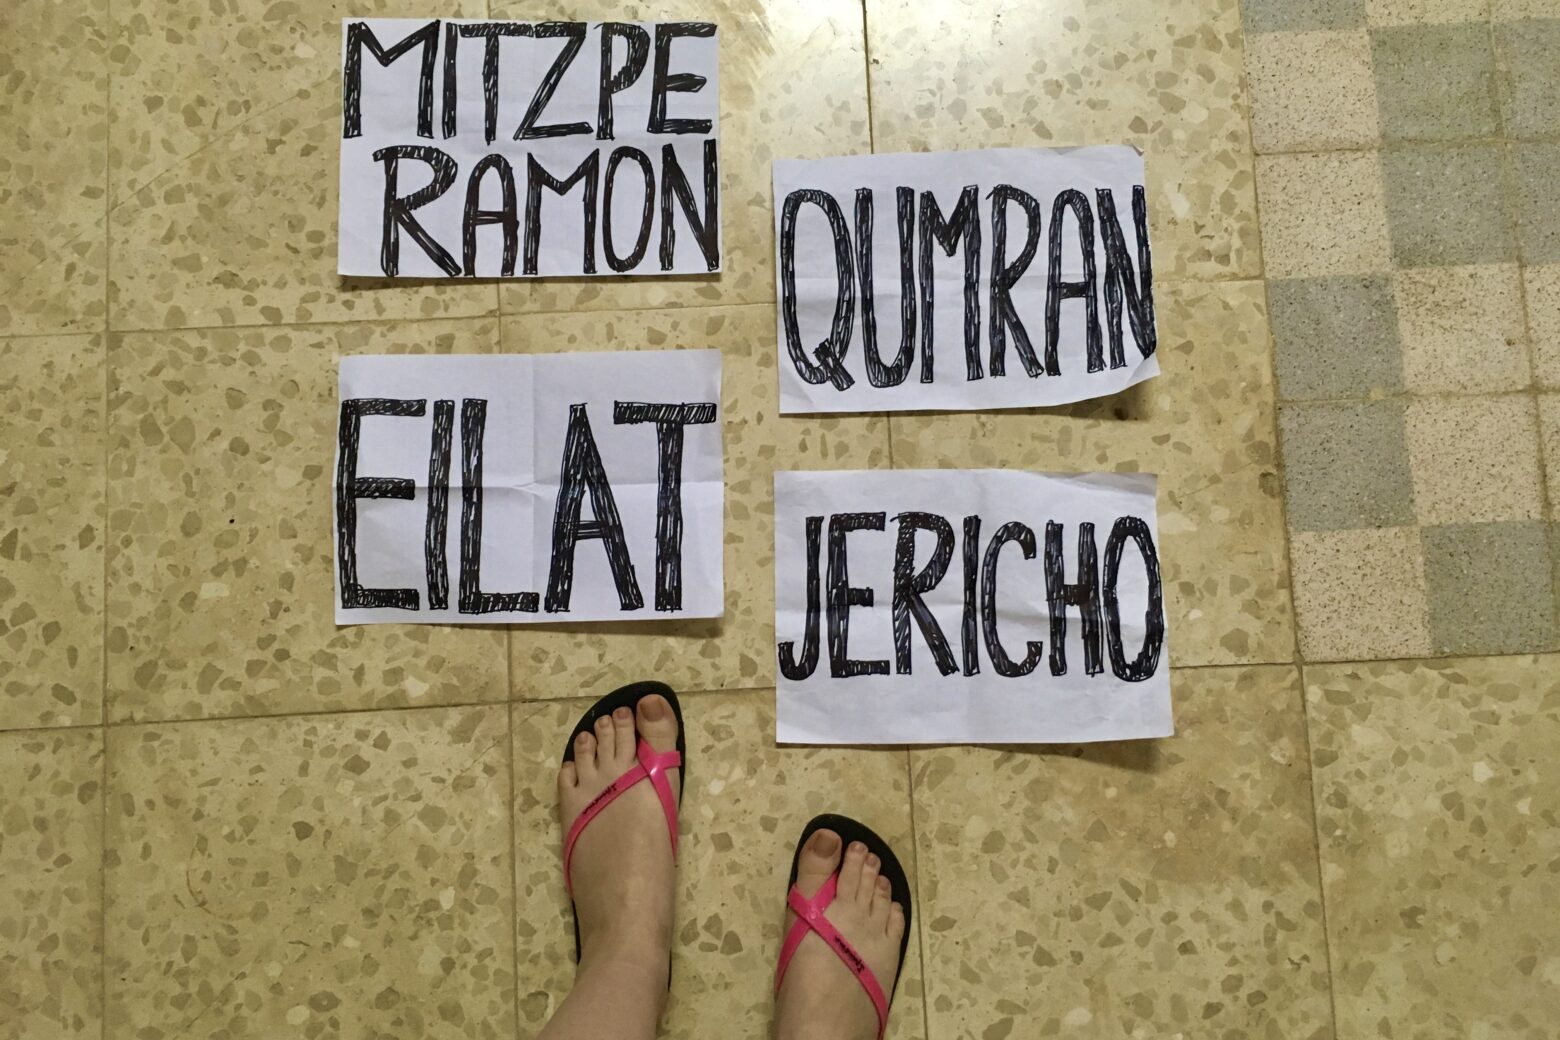 MITZPE
RAMON
QUMRAN
EILAT
JERICHO